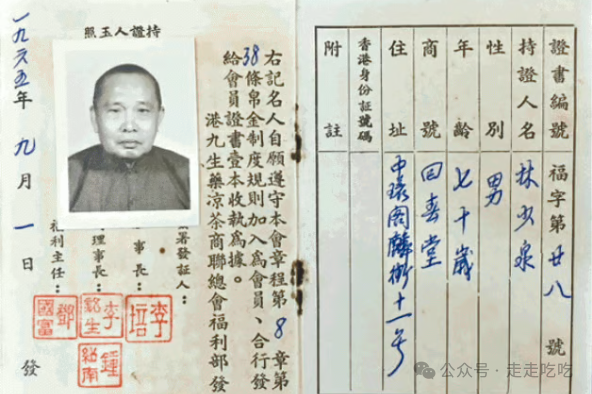 證書編號 福字第廿八號
持證人名 林少泉
性別 男
年齡 七十歲
商號 回春堂
住址 中環閣麟街十一号
香港身份証號碼
附註
持證人玉照
右記名人自願遵守本會章程第8章第
38條帛金制度規則加入為會員、合行發
給會員證書壹本收執為據。
港九生藥凉茶商聯總會福利部發
署發証人：
事長：
理事長：
福利主任：
李培
李銘生
鍾紹南
鄧國富
一九六五年九月一日發
公众号·走走吃吃